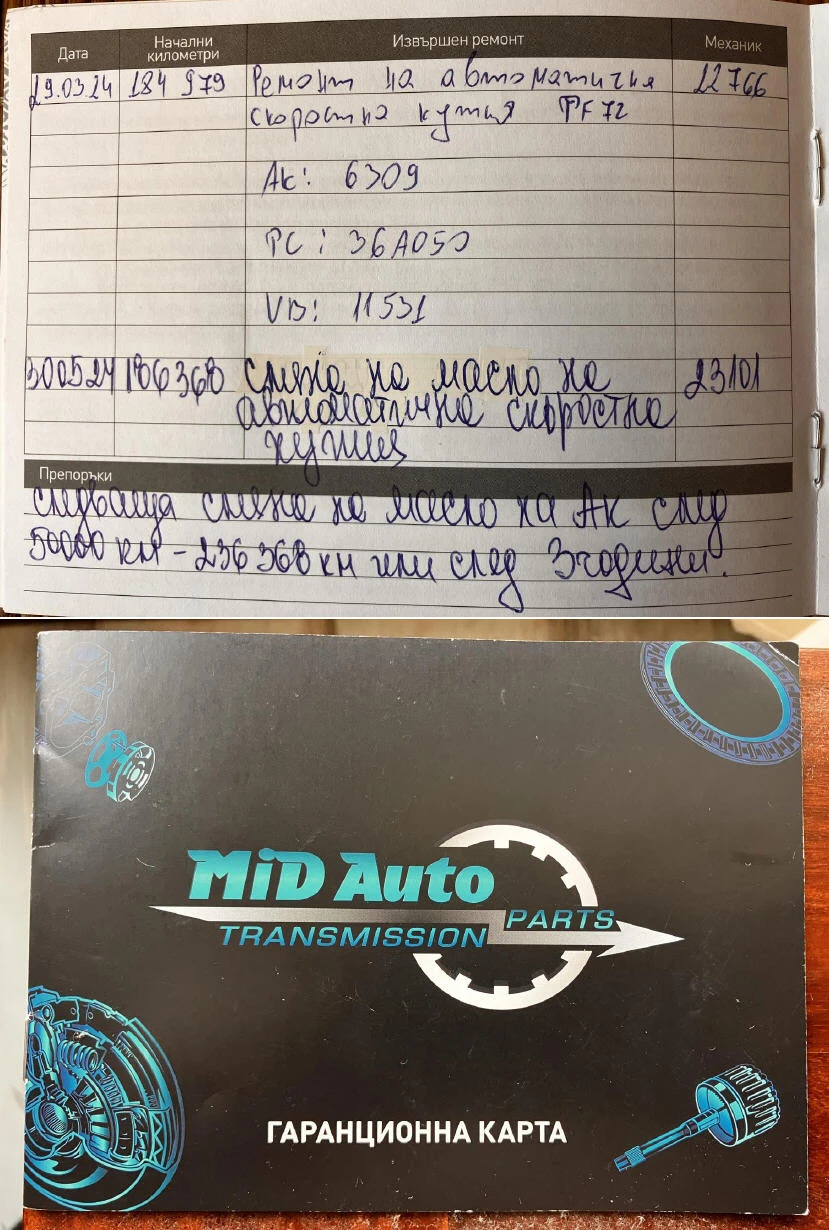 Дата Начални километри Извършен ремонт Механик
29.03.24 184 979 Ремонт на автоматична 12766
скоростна кутия TF72
АК: 6309
TC: 36A050
VB: 11531
300524 186368 смяна на масло на 23101
автоматична скоростна
кутия
Препоръки
следваща смяна на масло на АК след
50000 км - 236 368 км или след 3 години.
MiD Auto
PARTS
TRANSMISSION
ГАРАНЦИОННА КАРТА